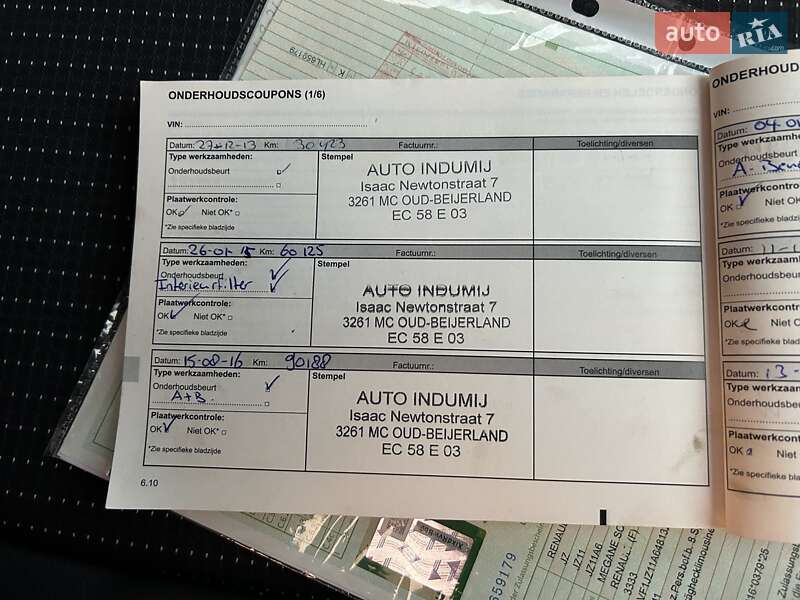 auto RIA.com
HL859179
ONDERHOUDSCOUPONS (1/6)
VIN:
Datum: 27-12-13 Km: 30423 Factuurnr.: Toelichting/diversen
Type werkzaamheden: Stempel
Onderhoudsbeurt
AUTO INDUMIJ
Isaac Newtonstraat 7
3261 MC OUD-BEIJERLAND
EC 58 E 03
Plaatwerkcontrole:
OK Niet OK*
*Zie specifieke bladzijde
Datum: 26-01-15 Km: 60125 Factuurnr.: Toelichting/diversen
Type werkzaamheden: Stempel
Onderhoudsbeurt
Interieurfilter
AUTO INDUMIJ
Isaac Newtonstraat 7
3261 MC OUD-BEIJERLAND
EC 58 E 03
Plaatwerkcontrole:
OK Niet OK*
*Zie specifieke bladzijde
Datum: 15-08-16 Km: 90188 Factuurnr.: Toelichting/diversen
Type werkzaamheden: Stempel
Onderhoudsbeurt
A+B.
AUTO INDUMIJ
Isaac Newtonstraat 7
3261 MC OUD-BEIJERLAND
EC 58 E 03
Plaatwerkcontrole:
OK Niet OK*
*Zie specifieke bladzijde
6.10
ONDERHOUD
VIN:
Datum: 04-01
Type werkzaamheden
Onderhoudsbeurt
Plaatwerkcontrole:
OK Niet OK
*Zie specifieke bladzij
Datum: 11-1
Type werkzaamhe
Onderhoudsbeurt
Plaatwerkcontrol
OK Niet
*Zie specifieke blad
Datum: 13-
Type werkzaam
Onderhoudsbeu
Plaatwerkcontro
OK Niet
*Zie specifieke bl
659179
RENAUL
JZ
JZ11
JZ11A6
MEGANE SC
RENAU
3333